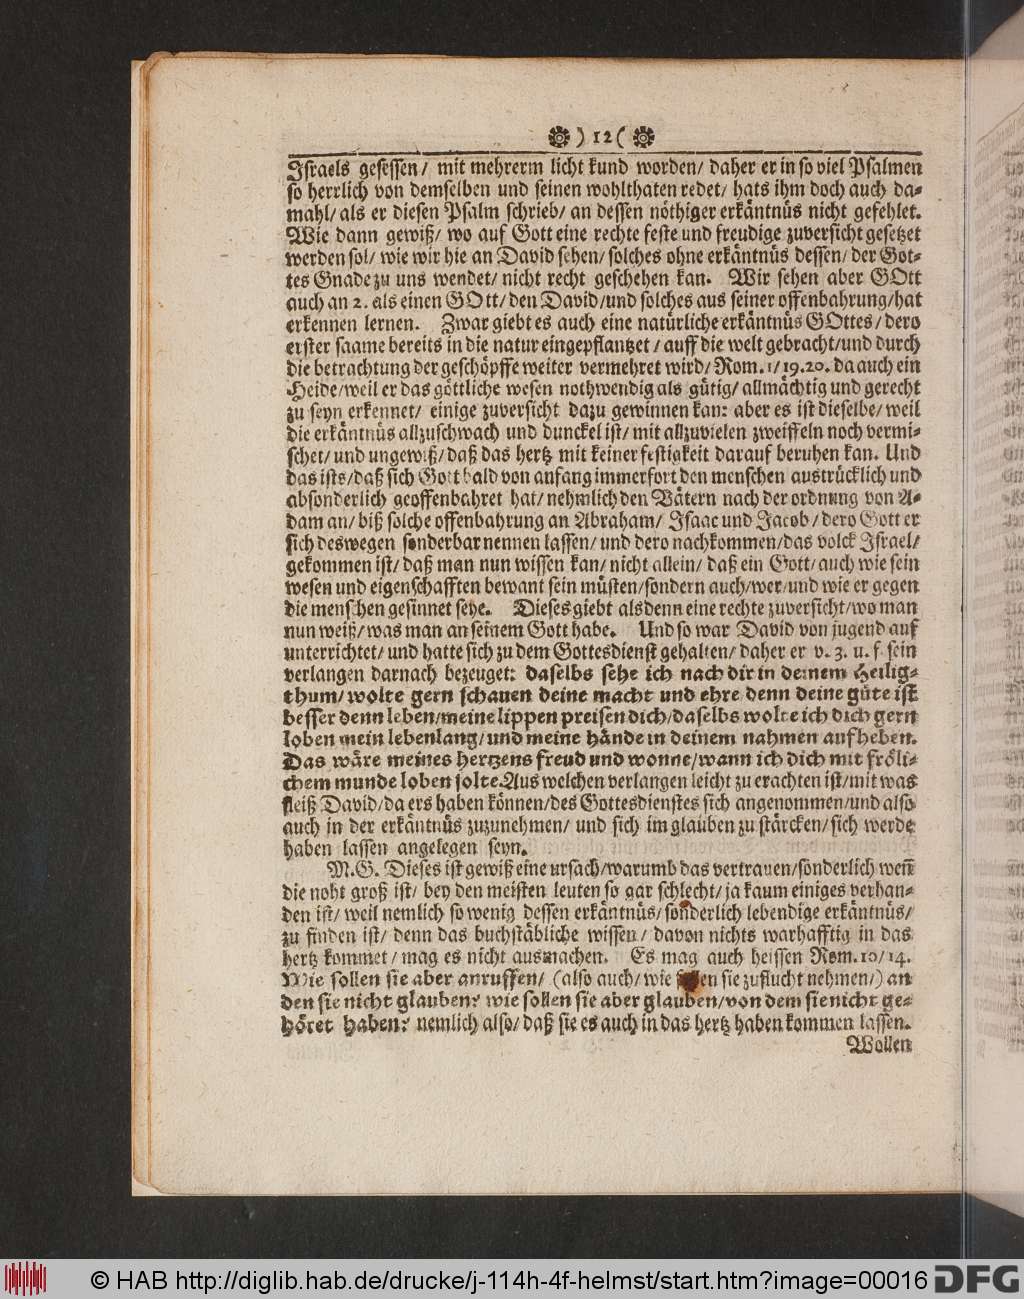 ❁ ) 12 ( ❁
Israels gesessen/ mit mehrerm licht kund worden/ daher er in so viel Psalmen
so herrlich von demselben und seinen wohlthaten redet/ hats ihm doch auch da-
mahl/ als er diesen Psalm schrieb/ an dessen nöthiger erkäntnüs nicht gefehlet.
Wie dann gewiß/ wo auf Gott eine rechte feste und freudige zuversicht gesetzet
werden sol/ wie wir hie an David sehen/ solches ohne erkäntnüs dessen/ der Got-
tes Gnade zu uns wendet/ nicht recht geschehen kan. Wir sehen aber GOtt
auch an 2. als einen GOtt/ den David/ und solches aus seiner offenbahrung/ hat
erkennen lernen. Zwar giebt es auch eine natürliche erkäntnüs GOttes/ dero
erster saame bereits in die natur eingepflantzet/ auff die welt gebracht/ und durch
die betrachtung der geschöpffe weiter vermehret wird/ Rom. 1/ 19. 20. da auch ein
Heide/ weil er das göttliche wesen nothwendig als gütig/ allmächtig und gerecht
zu seyn erkennet/ einige zuversicht dazu gewinnen kan: aber es ist dieselbe/ weil
die erkäntnüs allzuschwach und dunckel ist/ mit allzuvielen zweiffeln noch vermi-
schet/ und ungewiß/ daß das hertz mit keiner festigkeit darauf beruhen kan. Und
das ists/ daß sich Gott bald von anfang immerfort den menschen austrücklich und
absonderlich geoffenbahret hat/ nehmlich den Vätern nach der ordnung von A-
dam an/ biß solche offenbahrung an Abraham/ Isaac und Jacob/ dero Gott er
sich deswegen sonderbar nennen lassen/ und dero nachkommen/ das volck Israel/
gekommen ist/ daß man nun wissen kan/ nicht allein/ daß ein Gott/ auch wie sein
wesen und eigenschafften bewant sein müsten/ sondern auch/ wer/ und wie er gegen
die menschen gesinnet seye. Dieses giebt alsdenn eine rechte zuversicht/ wo man
nun weiß/ was man an seinem Gott habe. Und so war David von jugend auf
unterrichtet/ und hatte sich zu dem Gottesdienst gehalten/ daher er v. 3. u. f. sein
verlangen darnach bezeuget: daselbs sehe ich nach dir in deinem Heilig-
thum/ wolte gern schauen deine macht und ehre denn deine güte ist
besser denn leben/ meine lippen preisen dich/ daselbs wolte ich dich gern
loben mein lebenlang/ und meine hände in deinem nahmen aufheben.
Das wäre meines hertzens freud und wonne/ wann ich dich mit fröli-
chem munde loben solte. Aus welchen verlangen leicht zu erachten ist/ mit was
fleiß David/ da ers haben können/ des Gottesdienstes sich angenommen/ und also
auch in der erkäntnüs zuzunehmen/ und sich im glauben zu stärcken/ sich werde
haben lassen angelegen seyn.
M. G. Dieses ist gewiß eine ursach/ warumb das vertrauen/ sonderlich weñ
die noht groß ist/ bey den meisten leuten so gar schlecht/ ja kaum einiges verhan-
den ist/ weil nemlich so wenig dessen erkäntnüs/ sonderlich lebendige erkäntnüs/
zu finden ist/ denn das buchstäbliche wissen/ davon nichts warhafftig in das
hertz kommet/ mag es nicht ausmachen. Es mag auch heissen Rom. 10/ 14.
Wie sollen sie aber anruffen/ (also auch/ wie sollen sie zuflucht nehmen/) an
den sie nicht glauben? wie sollen sie aber glauben/ von dem sie nicht ge-
höret haben? nemlich also/ daß sie es auch in das hertz haben kommen lassen.
Wollen
© HAB http://diglib.hab.de/drucke/j-114h-4f-helmst/start.htm?image=00016 DFG